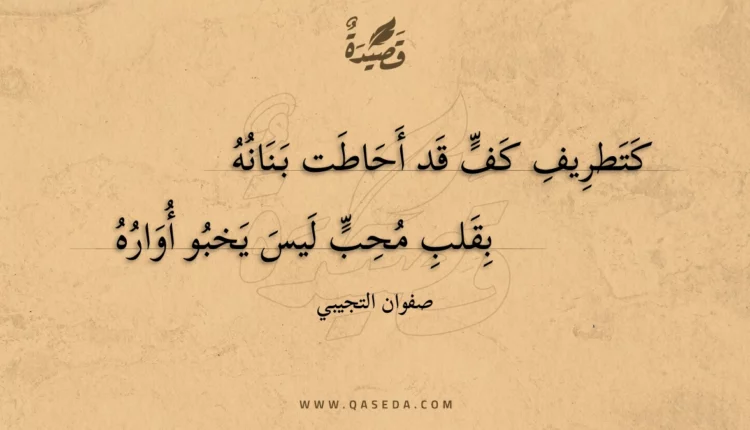 قَصِيدَةٌ
كَتَطرِيفِ كَفٍّ قَد أَحَاطَت بَنَانُهُ
بِقَلبِ مُحِبٍّ لَيسَ يَخبُو أُوَارُهُ
صفوان التجيبي
WWW.QASEDA.COM